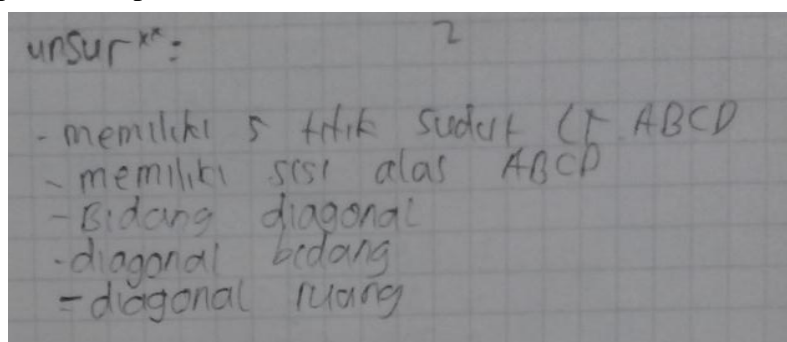 unsur**: 2
- memiliki 5 titik sudut (T ABCD
- memiliki sisi alas ABCD
- Bidang diagonal
- diagonal bidang
- diagonal ruang